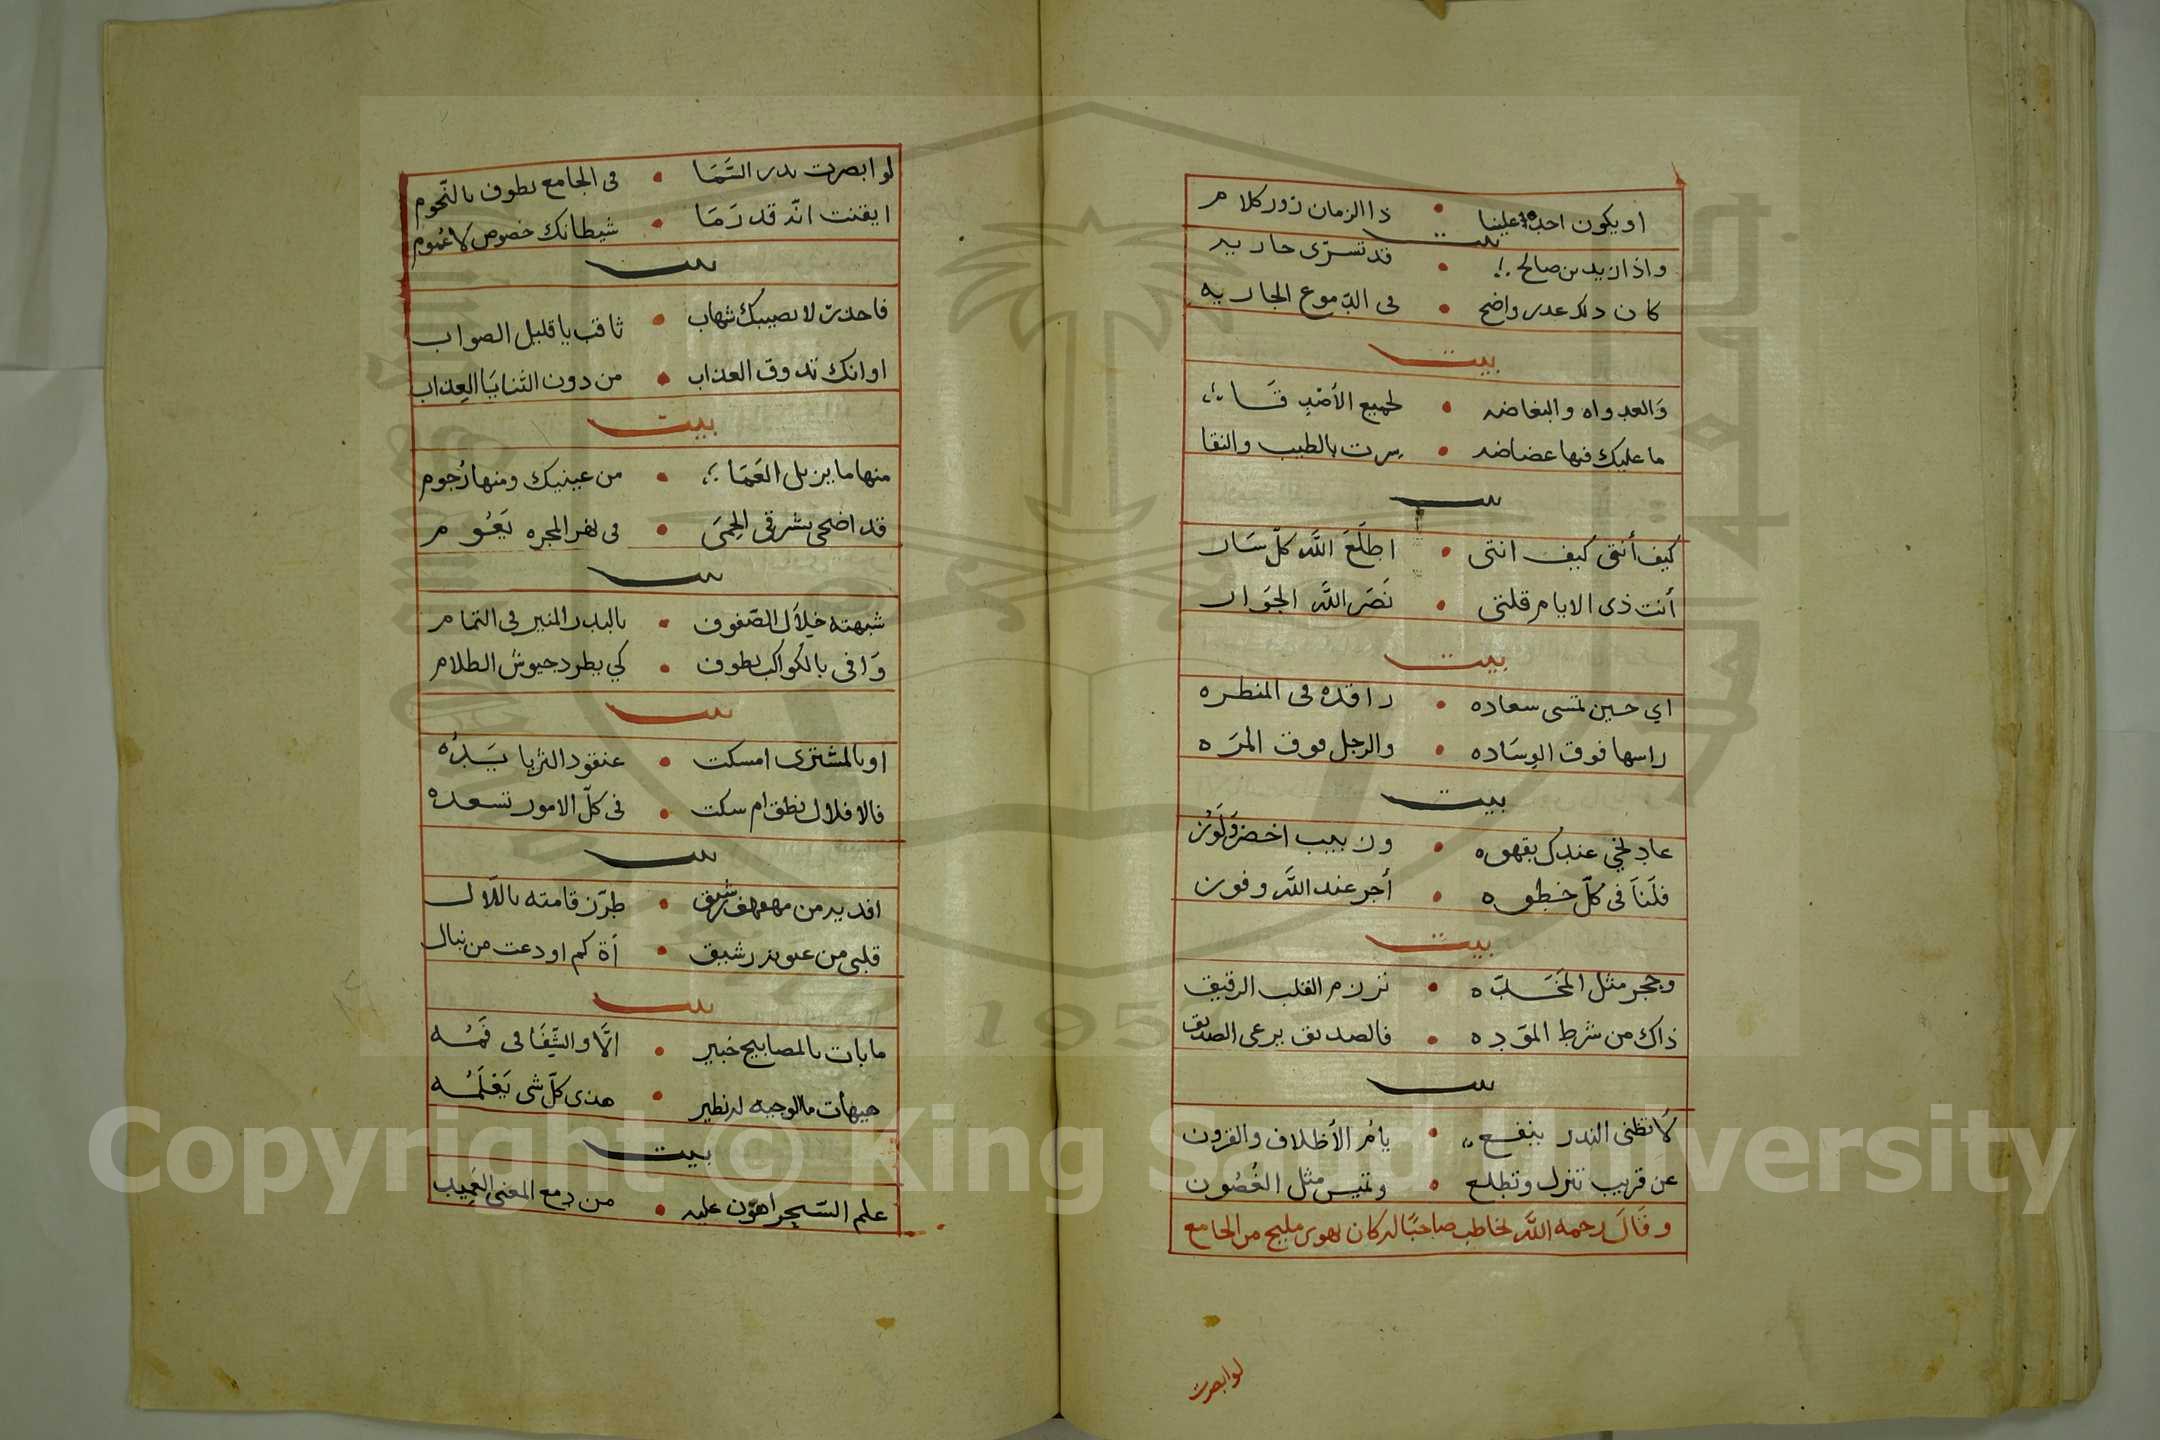 او يكون احد علينا • ذا الزمان زور كلام
بيت
واذا زيد بن صالح • قد تسرى جاريه
كان ذلك عذر واضح • فى الدموع الجاريه
بيت
والعدواه والبغاضه • لجميع الأصدقا
ما عليك فيها غضاضه • سرت بالطيب والنقا
بيت
كيف أنتى كيف انتى • اطلع الله كل سار
أنت ذى الايام قلتى • نصر الله الجوار
بيت
اي حين تمسى سعاده • راقده فى المنظره
راسها فوق الوساده • والرجل فوق المره
بيت
عاد لخي عندك بقهوه • وزبيب اخضر ولوز
فلنا فى كل خطوه • أجر عند الله وفوز
بيت
وحجر مثل المخده • تزرم القلب الرقيق
ذاك من شرط الموده • فالصديق يرعى الصديق
بيت
لا تظنى الندر ينفع • يا أم الأظلاف والقرون
عن قريب تنزل وتطلع • وتميس مثل الغصون
وقال رحمه الله يخاطب صاحبا له كان يهوى مليح من الجامع
لو ابصرت
لو ابصرت بدر السما • فى الجامع يطوف بالنجوم
ايقنت انه قد رما • شيطانك خصوص لا عموم
بيت
فاحذر لا يصيبك شهاب • ثاقب يا قليل الصواب
او انك تذوق العذاب • من دون الثنايا العذاب
بيت
منها ما يزيل العما • من عينيك ومنها رجوم
قد اضحى بشرقى الحمى • فى نهر المجره يعوم
بيت
شبهته خلال الصفوف • بالبدر المنير فى التمام
وافى بالكواكب يطوف • كي يطرد جيوش الظلام
بيت
او بالمشترى امسكت • عنقود الثريا يده
فالافلاك نطق ام سكت • فى كل الامور تسعده
بيت
افديه من مهفهف رشيق • طرز قامته بالدلال
قلبى من عيونه رشيق • أه كم اودعت من نبال
بيت
ما بات بالمصابيح خبير • الا والشفا فى فمه
هيهات ما لوجهه نظير • هذى كل شى يعلمه
بيت
علم السحر اهون عليه • من دمع المعنى العجيب
Copyright © King Saud University
1957